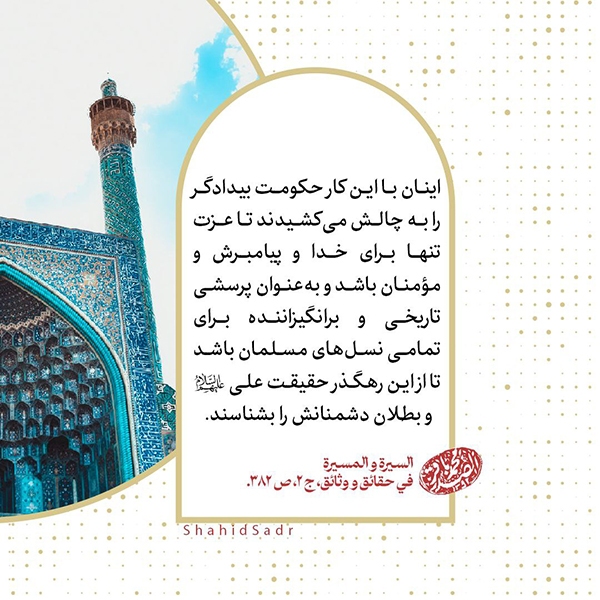 اینان با این کار حکومت بیدادگر
را به چالش می‌کشیدند تا عزت
تنها برای خدا و پیامبرش و
مؤمنان باشد و به‌عنوان پرسشی
تاریخی و برانگیزاننده برای
تمامی نسل‌های مسلمان باشد
تا از این رهگذر حقیقت علی علیه‌السلام
و بطلان دشمنانش را بشناسند.
السيرة و المسيرة
في حقائق و وثائق، ج ۲، ص ۳۸۲.
ShahidSadr